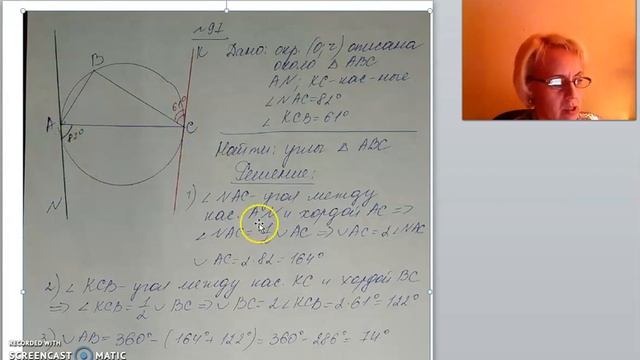 №91
Дано: окр. (O; r) описана
около △ABC
AN; KC-кас-ные
∠NAC=82°
∠KCB=61°
Найти: углы △ABC
Решение:
1) ∠NAC-угол между
кас. AN и хордой AC ⇒
∠NAC=½ ∪AC ⇒ ∪AC=2∠NAC
∪AC=2·82=164°
2) ∠KCB-угол между кас. KC и хордой BC
⇒ ∠KCB=½ ∪BC ⇒ ∪BC=2∠KCB=2·61°=122°
3) ∪AB=360°-(164°+122°)=360°-286°=74°
K
B
61°
A
C
82°
N
RECORDED WITH
SCREENCAST MATIC